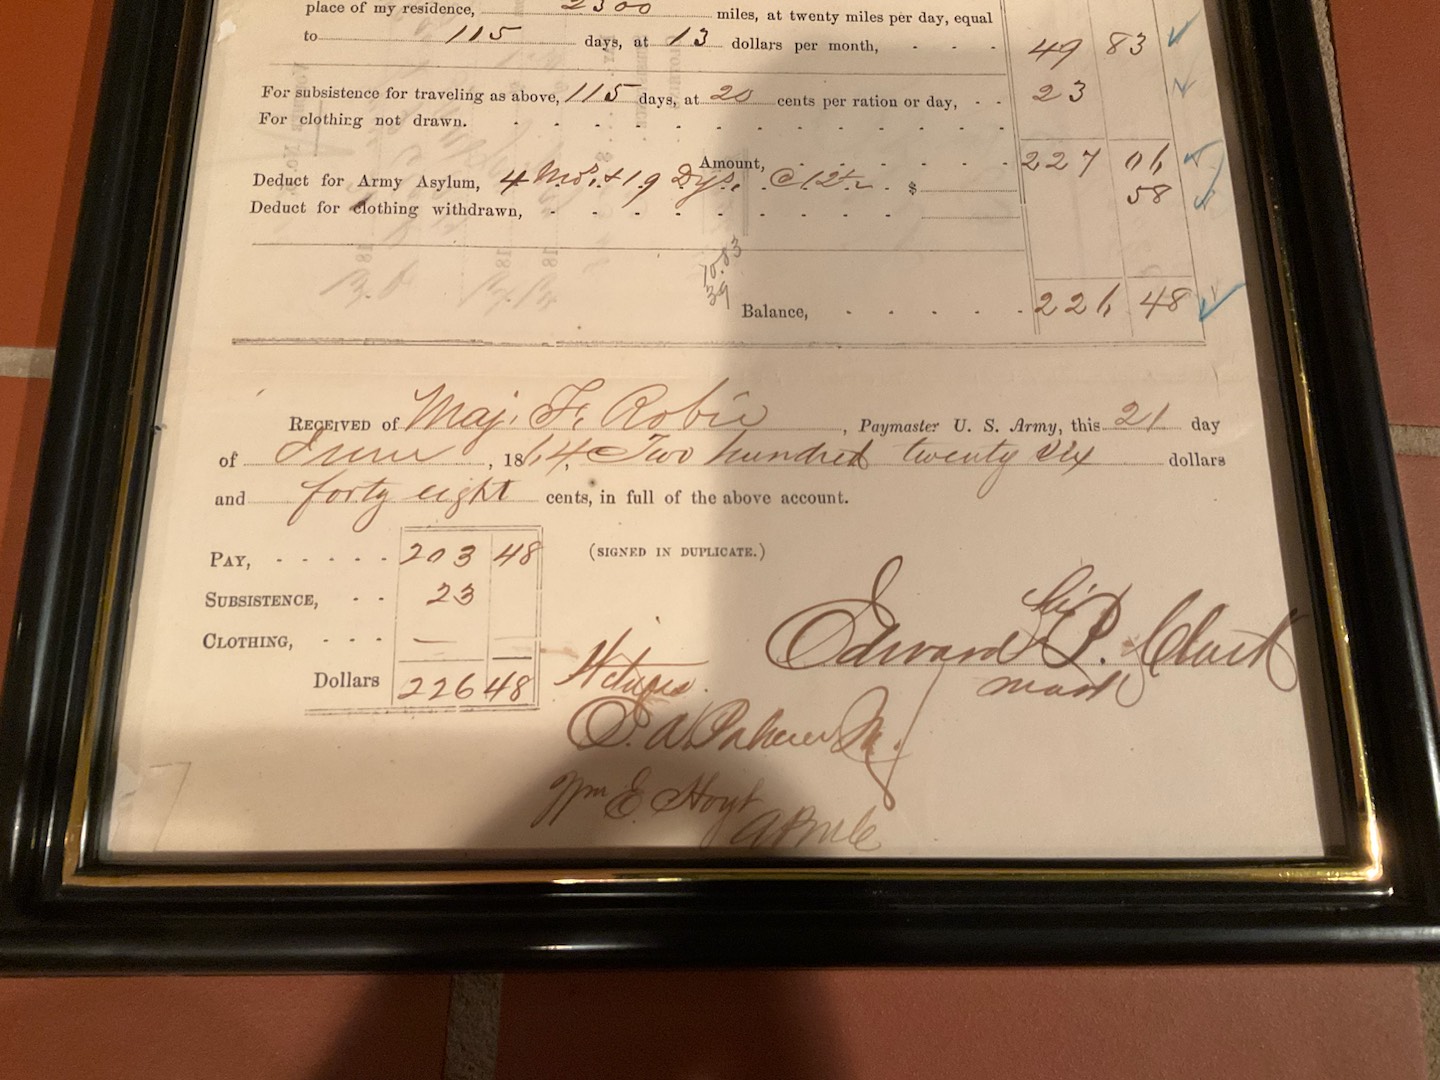 place of my residence, 2300 miles, at twenty miles per day, equal
to 115 days, at 13 dollars per month, - - - 49 83
For subsistence for traveling as above, 115 days, at 20 cents per ration or day, - - 23
For clothing not drawn. - - - - - - - - - - - - -
Amount, - - - - - - 227 06
Deduct for Army Asylum, 4 Mos. + 19 Dys. @ 12½ . $ 58
Deduct for clothing withdrawn, - - - - - - - - -
10.83
39
Balance, - - - - - 226 48
RECEIVED of Maj. F. Robie, Paymaster U. S. Army, this 21 day
of June, 1864, Two hundred twenty Six dollars
and forty eight cents, in full of the above account.
PAY, - - - - - 203 48 (SIGNED IN DUPLICATE.)
SUBSISTENCE, - - 23
CLOTHING, - - - —
Dollars 226 48
his
Edward P. × Clark
mark
Witness
Wm E. Hoyt